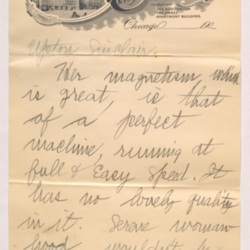 APARTMENT BUILDING.
Chicago, 190
Upton Sinclair.
Her magnetism, which
is great, is that
of a perfect
machine, running at
full & Easy Speed. It
has no lovely quality
in it. Serene woman-
hood wouldn't be